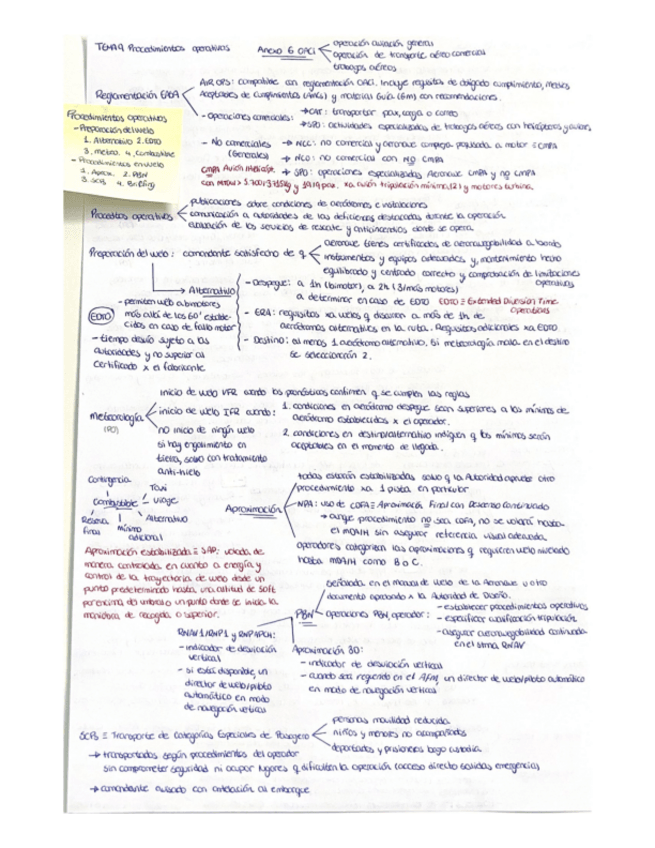 TEMA 9 Procedimientos operativos
Anexo 6 OACI
operación aviación general
operación de transporte aéreo comercial
trabajos aéreos
Reglamentación EASA
AIR OPS: compatible con reglamentación OACI. Incluye requisitos de obligado cumplimiento, Medios
Aceptables de Cumplimientos (AMCs) y material Guía (GM) con recomendaciones.
- Operaciones comerciales:
→ CAT: transportar pax, carga o correo
→ SPO: actividades especializadas de trabajos aéreos con helicópteros y avion.
- No comerciales
(Generales)
→ NCC: no comercial y aeronave compleja propulsada a motor ≡ CMPA
→ NCO: no comercial con NO CMPA
→ SPO: operaciones especializadas Aeronave CMPA y no CMPA
CMPA Avión /Helicop.
con MTOW > 5.700/3175kg y 19/9 pax. xa avión tripulación mínima (2) y motores turbina.
Procedimientos operativos
- Preparación del vuelo
1. Alternativo 2. EDTO
3. meteo. 4. Combustible
- Procedimientos en vuelo
1. Aprox. 2. PBN
3. SCPs 4. Briefing
operativos
publicaciones sobre condiciones de aeródromos e instalaciones
comunicación a autoridades de las deficiencias destacadas durante la operación
evaluación de los servicios de rescate y antiincendios donde se opera.
Preparación del vuelo: comandante satisfecho de q
aeronave tiene certificados de aeronavegabilidad a bordo
instrumentos y equipos adecuados y, mantenimiento hecho
equilibrado y centrado correcto y comprobación de limitaciones
operativas
→ Alternativo
- Despegue: a 1h (bimotor), a 2h (3/más motores)
a determinar en caso de EDTO EDTO ≡ Extended Diversion Time
Operations
- ERA: requisitos xa vuelos q discurran a más de 1h de
aeródromos alternativos en la ruta. Requisitos adicionales xa EDTO
- Destino: al menos 1 aeródromo alternativo. Si meteorología mala en el destino
se seleccionarán 2.
EDTO
- permiten vuelo a bimotores
más allá de los 60' estable-
cidos en caso de fallo motor
- tiempo desvío sujeto a las
autoridades y no superior al
certificado x el fabricante
Meteorología
inicio de vuelo VFR cuando los pronósticos confirmen q se cumplen las reglas
inicio de vuelo IFR cuando:
1. condiciones en aeródromo despegue sean superiores a los mínimos de
aeródromo establecidos x el operador.
2. condiciones en destino/alternativo indiquen q los mínimos serán
aceptables en el momento de llegada.
no inicio de ningún vuelo
si hay engelamiento en
tierra, salvo con tratamiento
anti-hielo
Contingencia
Taxi
Combustible
Viaje
Alternativo
Reserva
final
mínimo
adicional
Aproximación
todas estarán estabilizadas salvo q la Autoridad apruebe otro
procedimiento xa 1 pista en particular
NPA: uso de CDFA ≡ Aproximación Final con Descenso Continuado
→ aunque procedimiento no sea CDFA, no se volará hasta
el MDA/H sin asegurar referencia visual adecuada.
operadores categorizan las aproximaciones q requieren vuelo nivelado
hasta MDA/H como B o C.
Aproximación estabilizada ≡ SAP: volada de
manera controlada en cuanto a energía y
control de la trayectoria de vuelo desde un
punto predeterminado hasta, una altitud de 50ft
por encima del umbral o un punto donde se inicia la
maniobra de recogida o superior.
PBN
señalada en el manual de vuelo de la Aeronave u otro
documento aprobado x la Autoridad de Diseño.
operaciones PBN, operador:
- establecer procedimientos operativos
- especificar cualificación tripulación
- asegurar aeronavegabilidad continuada
en el stma RNAV
RNAV 1/RNP1 y RNP APCH:
- indicador de desviación
vertical
- si está disponible, un
director de vuelo/piloto
automático en modo
de navegación vertical
Aproximación 3D:
- indicador de desviación vertical
- cuando sea requerido en el AFM, un director de vuelo/piloto automático
en modo de navegación vertical
SCPs ≡ Transporte de Categorías Especiales de Pasajero
personas movilidad reducida
niños y menores no acompañados
deportados y prisioneros bajo custodia.
→ transportados según procedimientos del operador
sin comprometer seguridad ni ocupar lugares q dificulten la operación (acceso directo salidas emergencia)
→ comandante avisado con antelación al embarque